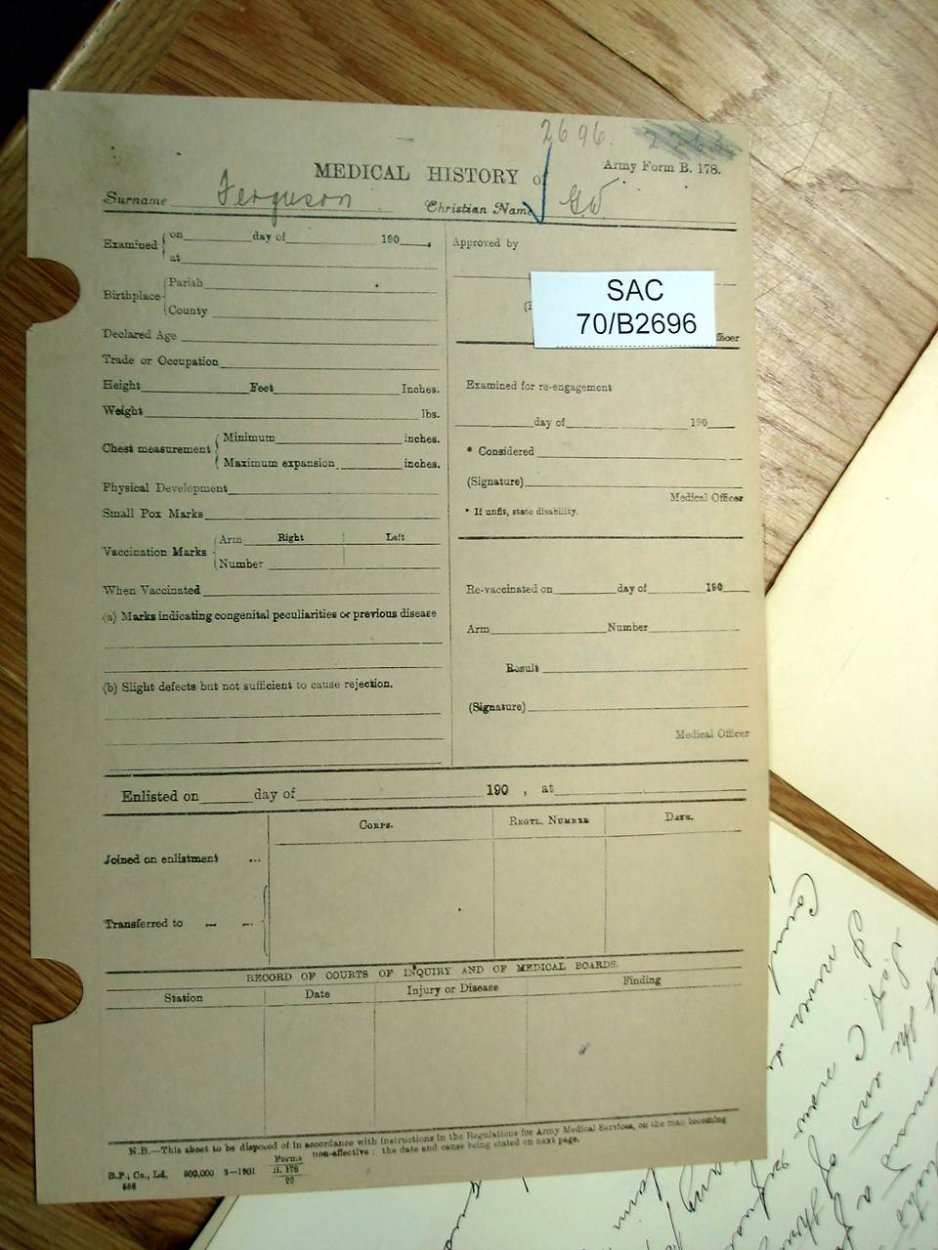 2696.
Army Form B. 178.
MEDICAL HISTORY of
Surname Ferguson Christian Name GW
Examined on day of 190
at
Birthplace Parish
County
Declared Age
Trade or Occupation
Height Feet Inches.
Weight lbs.
Chest measurement Minimum inches.
Maximum expansion inches.
Physical Development
Small Pox Marks
Vaccination Marks Arm Right Left
Number
When Vaccinated
(a) Marks indicating congenital peculiarities or previous disease
(b) Slight defects but not sufficient to cause rejection.
Approved by
SAC
70/B2696
Officer
Examined for re-engagement
day of 190
* Considered
(Signature)
Medical Officer
* If unfit, state disability.
Re-vaccinated on day of 190
Arm Number
Result
(Signature)
Medical Officer
Enlisted on day of 190 , at
Corps. Regtl. Number Date.
Joined on enlistment ...
Transferred to
RECORD OF COURTS OF INQUIRY AND OF MEDICAL BOARDS.
Station Date Injury or Disease Finding
N.B.—This sheet to be disposed of in accordance with instructions in the Regulations for Army Medical Services, on the man becoming
non-effective ; the date and cause being stated on next page.
B.P.; Co., Ld. 800,000 5—1901 Forms
B. 178